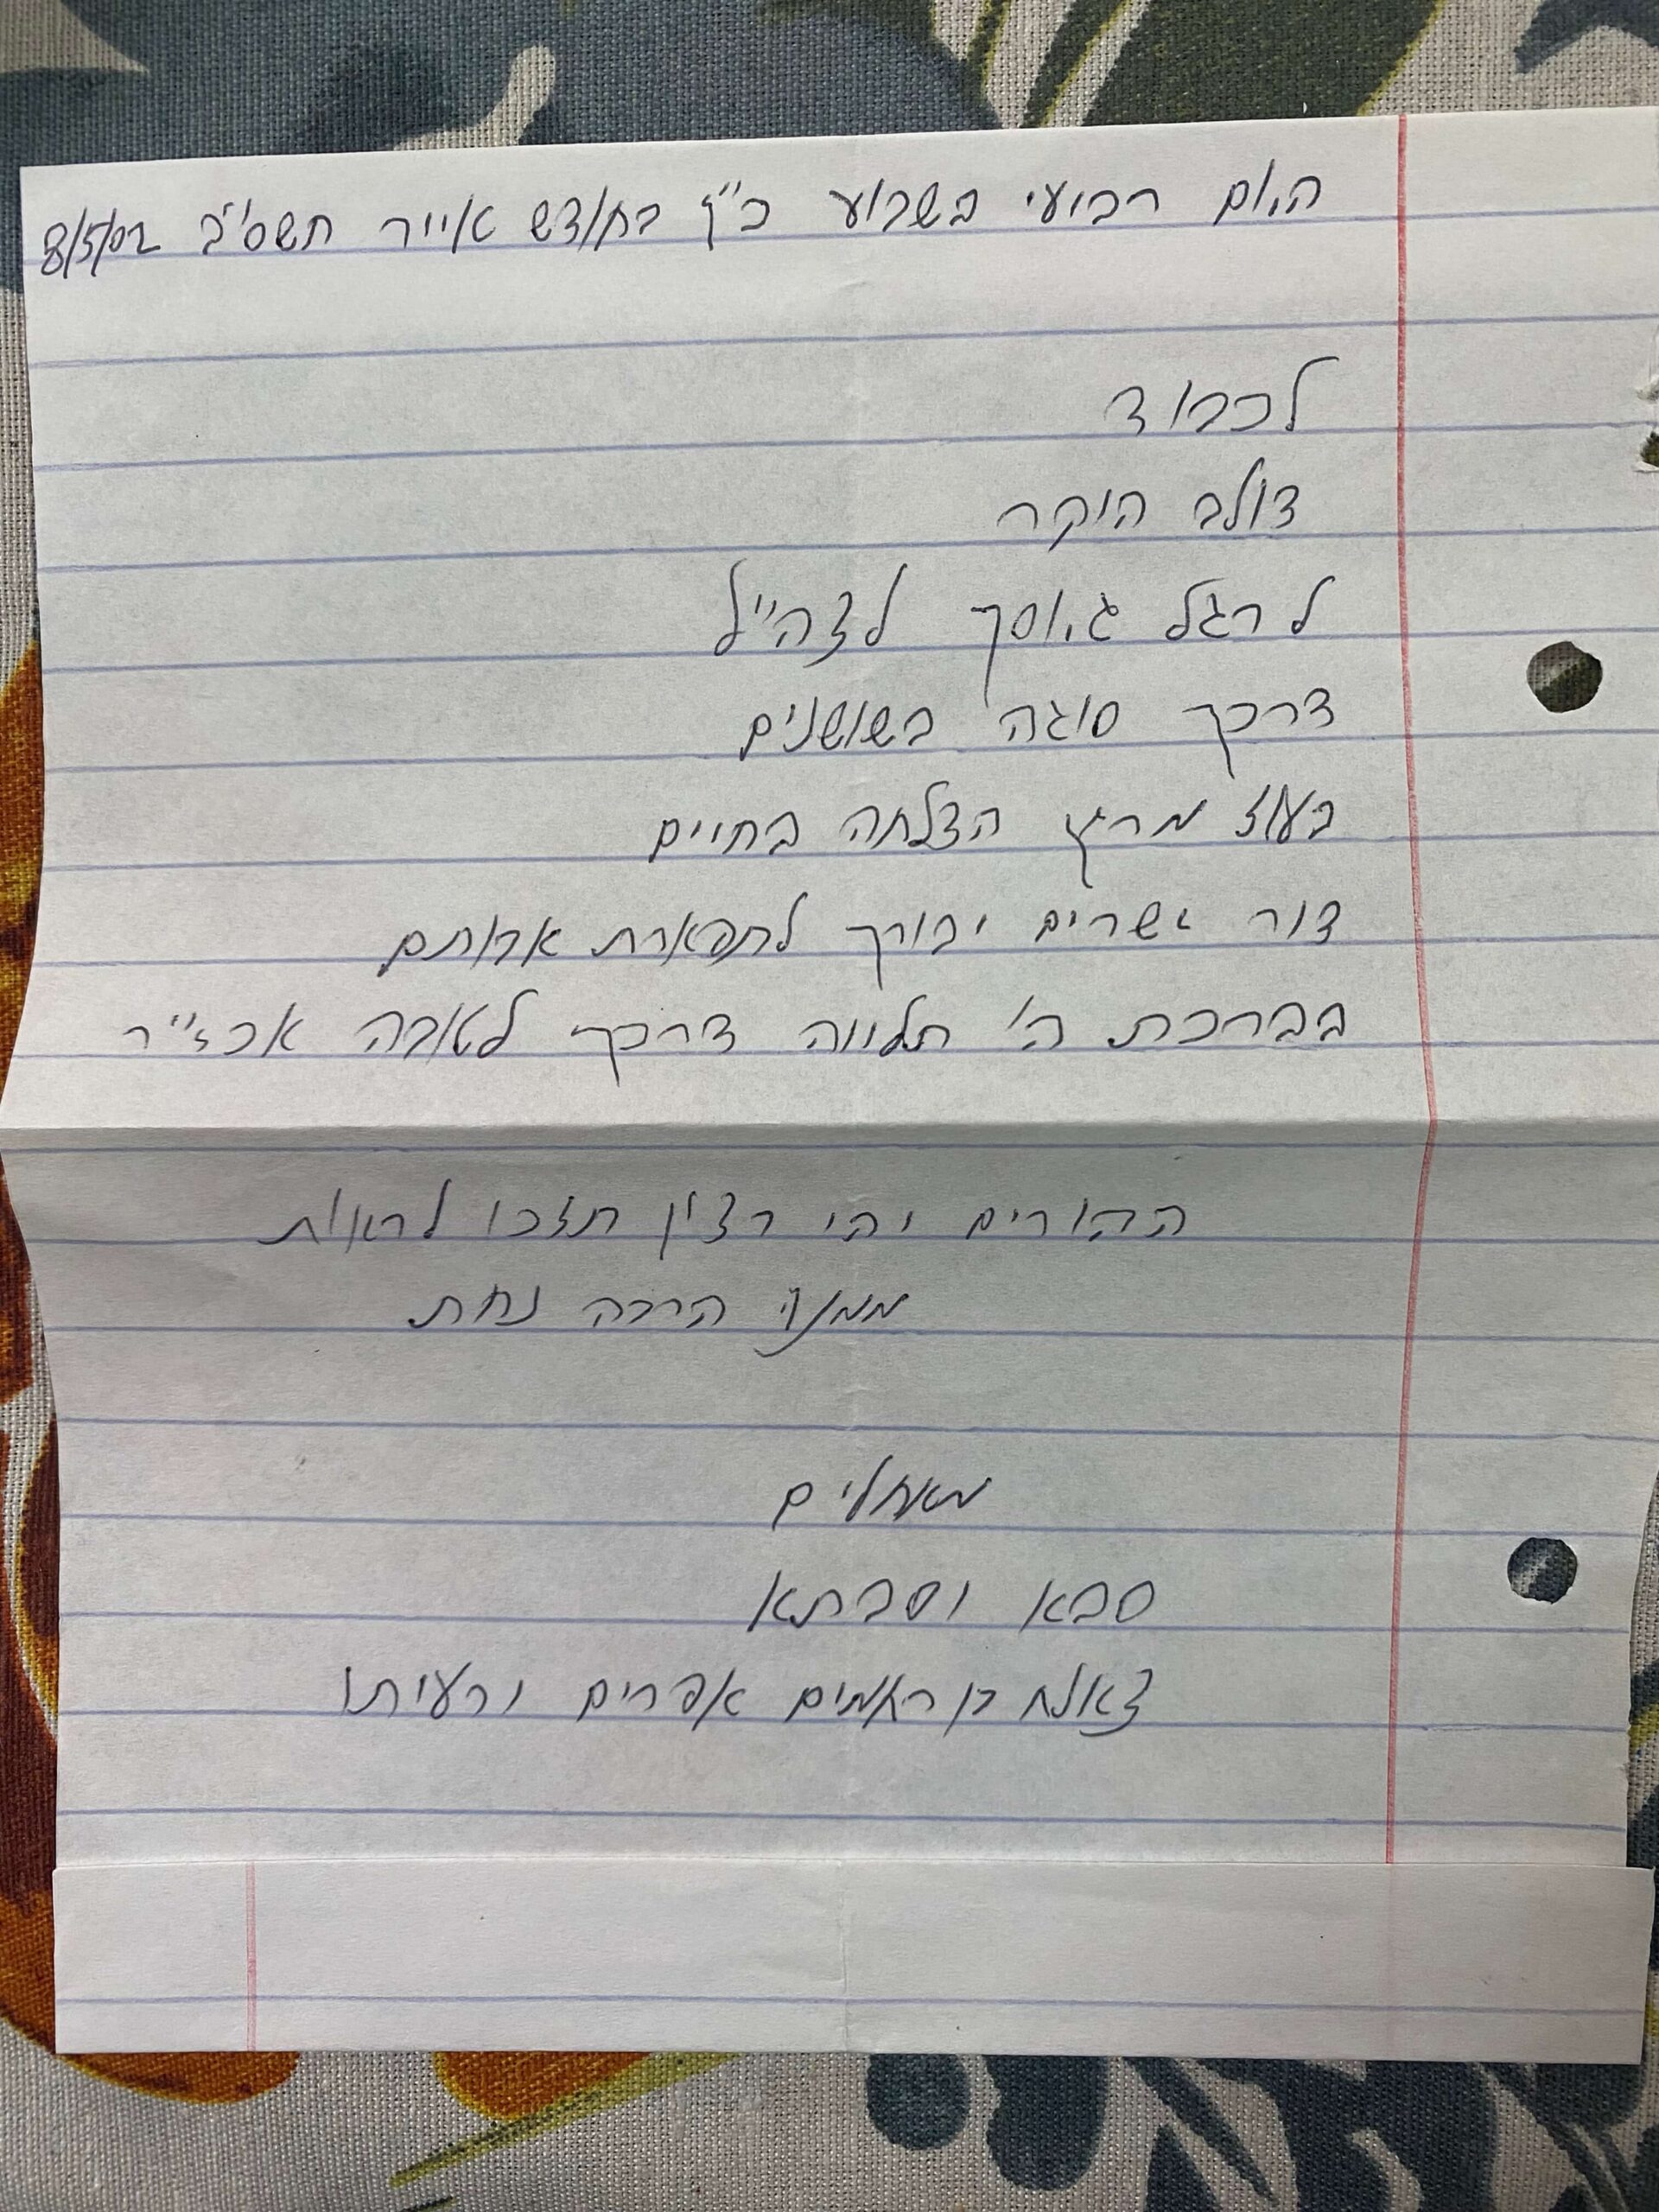 היום רביעי בשבוע כ"ו בחודש אייר תשס"ב 8/5/02
לכבוד
דולב היקר
לרגל גיוסך לצה"ל
דרכך סוגה בשושנים
בעוז מרגץ הצלחה בחיים
דור ישרים יבורך לתפארת אבותם
בברכת ה' תלווה דרכך לטובה אכי"ר
ההורים יהי רצון תזכו לראות
ממנו הרבה נחת
מאחלים
סבא וסבתא
צאלח בן רחמים אפרים ורעיתו